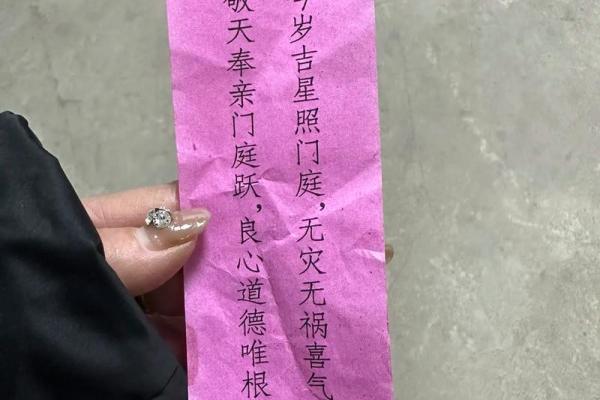 今岁吉星照门庭，无灾无祸喜气
敬天奉亲门庭跃，良心道德唯根